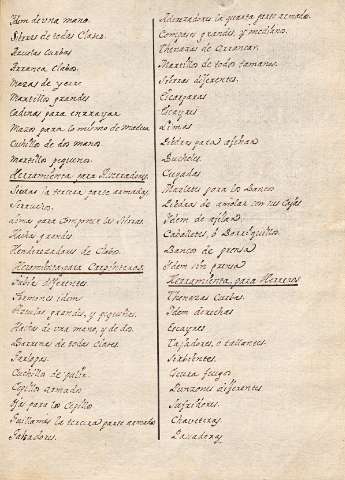 Idem de una mano.
Sierras de todas Clases.
Azuelas Curbas
Arranca Clabos.
Mazas de yerro
Martillos grandes
Cadenas para enrrayar
Mazos para lo mismo de Madera
Cuchillo de dos manos
Martillos pequeños
Herramienta para Aserradores.
Sierras la tercera parte armadas.
Serrucho.
Limas para Componer las Sierras.
Hachas grandes
Henderezadores de Clabo.
Herramienta para Carpinteros.
Sierras diferentes
Formones idem
Azuelas grandes, y pequeñas.
Hachas de una mano, y de dos.
Barrenas de todas clases.
Garlopas.
Cuchilla de pulir.
Cepillos armados
Ojas para los Cepillos
Guillames la tercera parte armados
Taladores.
Aderezadores la quarta parte armados.
Compases grandes, y medianos.
Thenazas de Arrancar.
Martillos de todos tamaños.
Sierras diferentes.
Escarparas
Escayres
Limas
Piedras para afilar
Bucheles.
Cuñadas
Marletes para los Bancos
Piedras de amolar con sus Cajas
Idem de afilar.
Caballetes, ó Borriquillos.
Bancos de prensa
Idem sin prensa
Herramienta, para Herreros
Thenazas Curbas.
Idem derechas
Escayres
Tajaderas, o tallantes.
Sirbientes.
Punzones diferentes
Chaveteras.